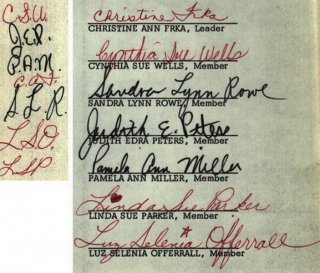 C.S.W.
J.E.P.
P.A.M.
C.A.F.
S.L.R.
L.S.O.
L.S.P.
Christine Frka
CHRISTINE ANN FRKA, Leader
Cynthia Sue Wells
CYNTHIA SUE WELLS, Member
Sandra Lynn Rowe
SANDRA LYNN ROWE, Member
Judith E. Peters
JUDITH EDRA PETERS, Member
Pamela Ann Miller
PAMELA ANN MILLER, Member
Linda Sue Parker
LINDA SUE PARKER, Member
Luz Selenia Offerrall
LUZ SELENIA OFFERRALL, Member